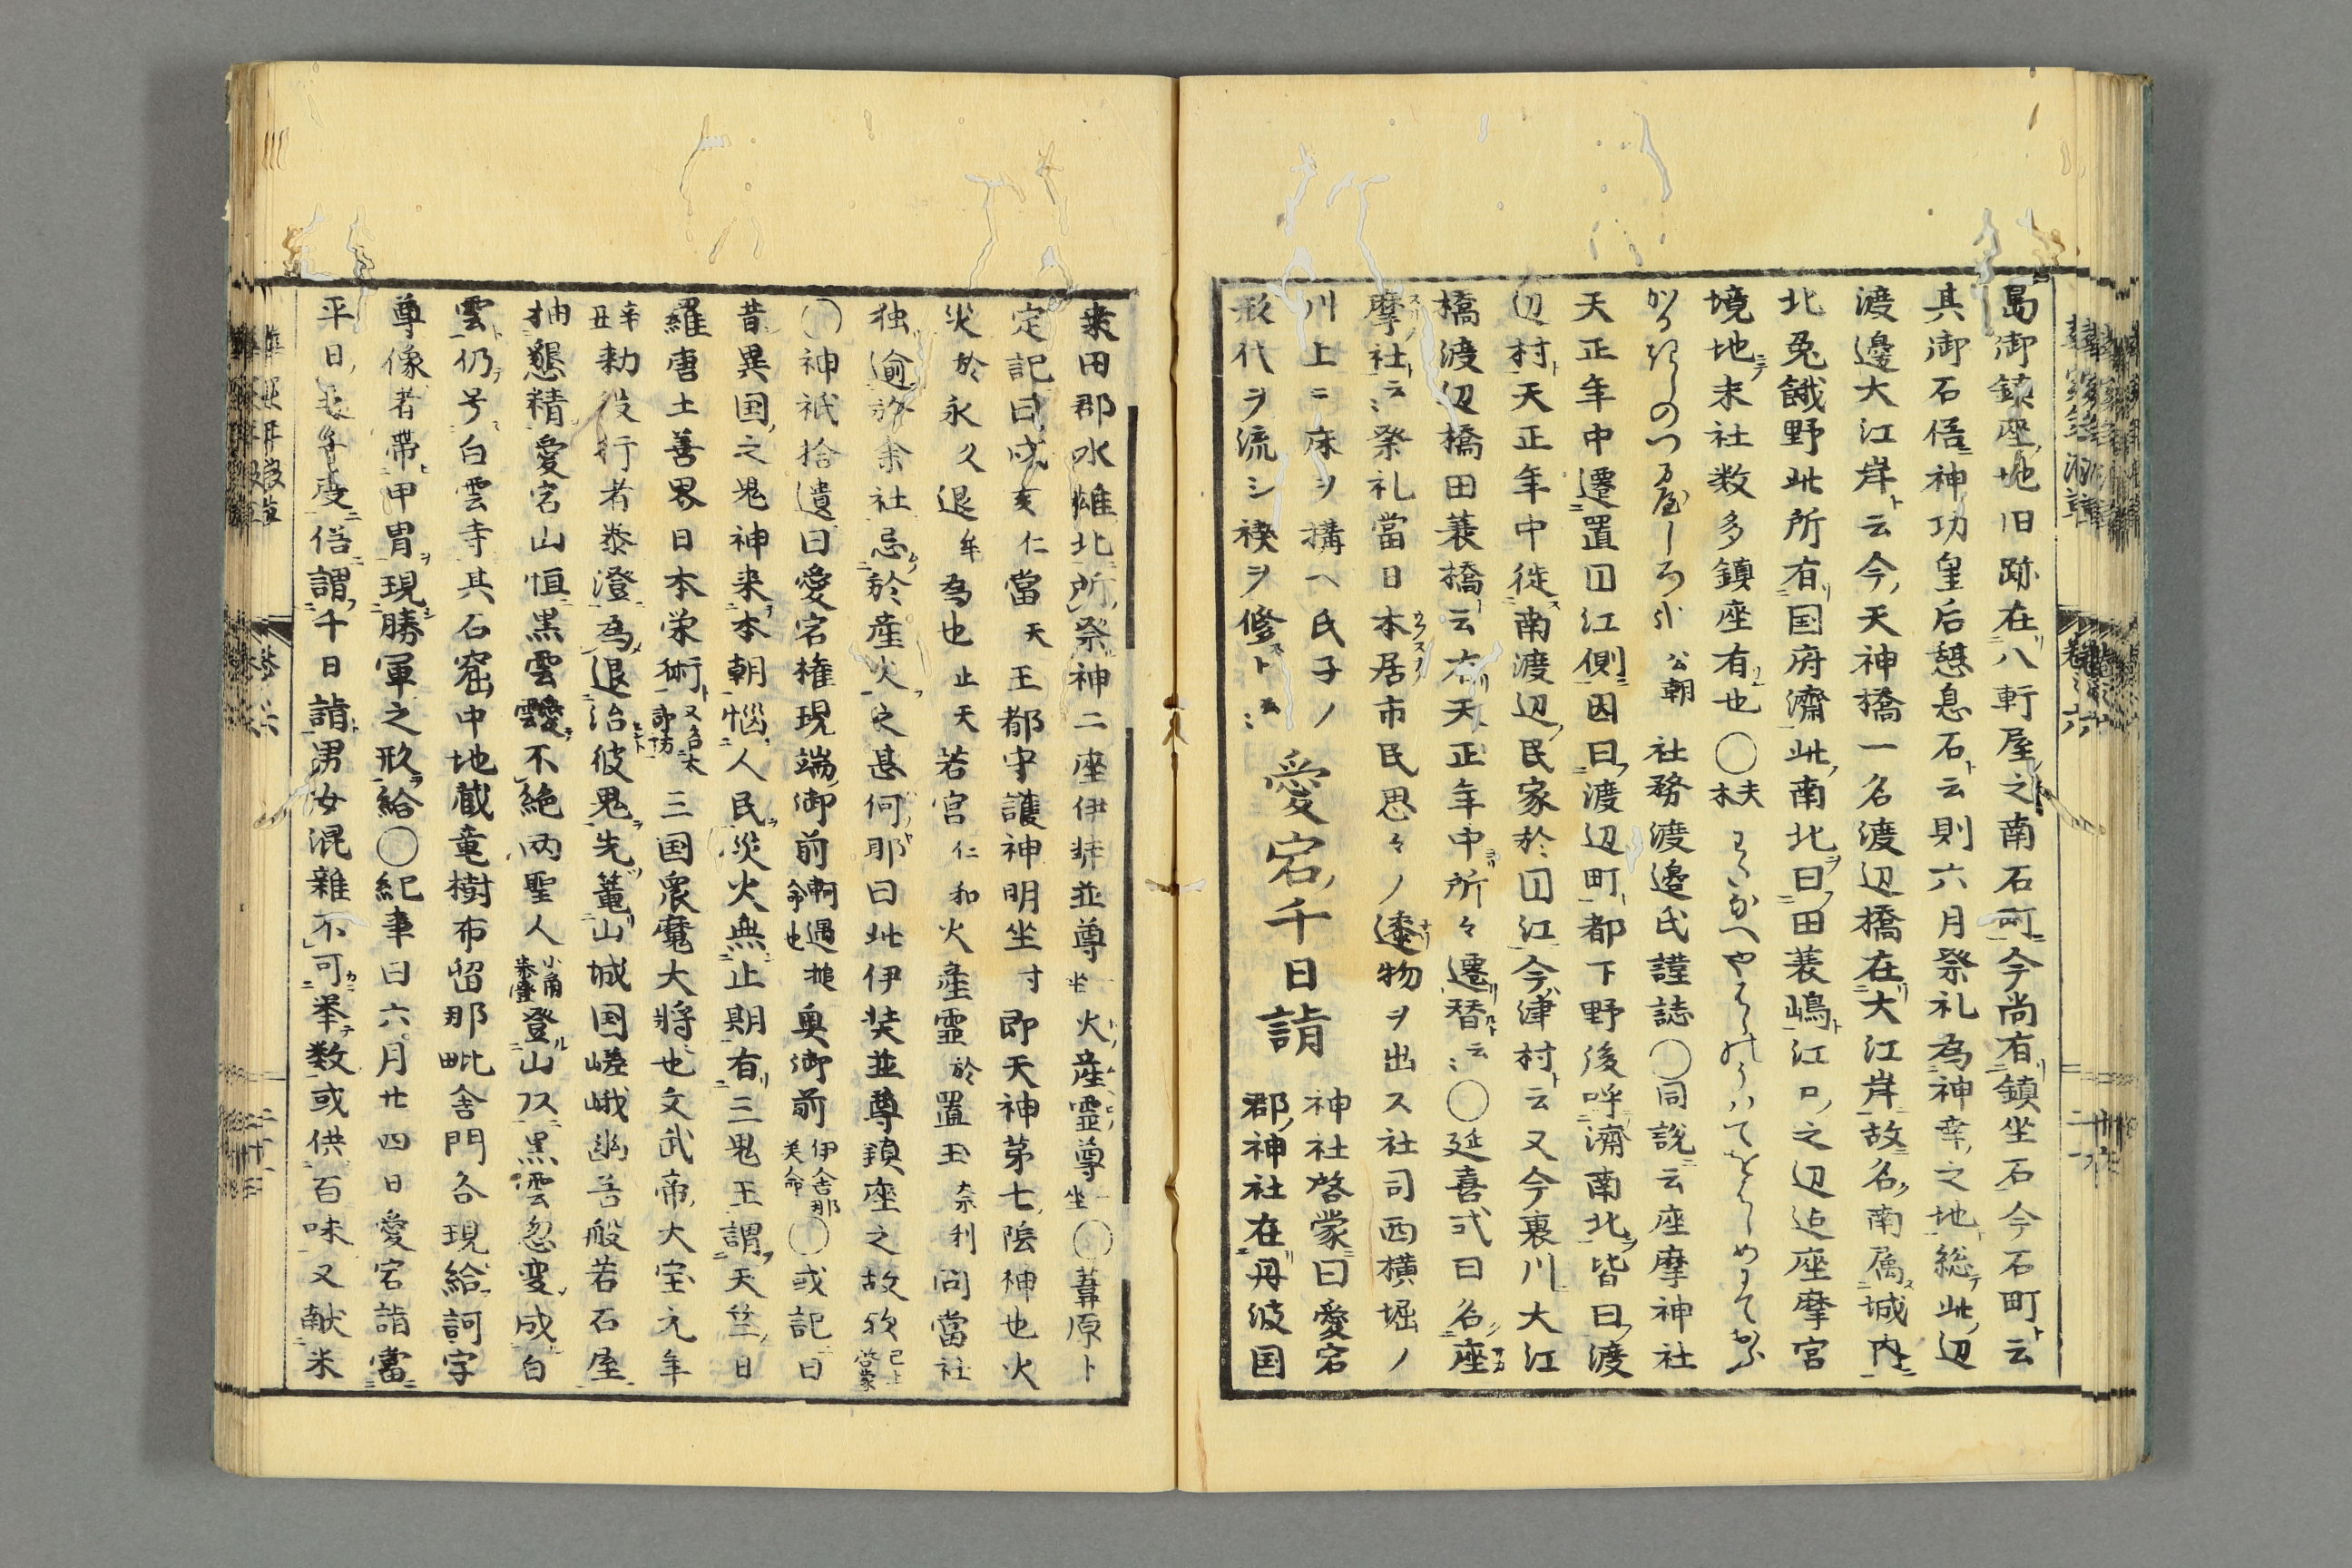 御鎮座地旧跡在八軒屋之南石町今尚有鎮坐石今石町云
其御石俉神功皇后憩息石云則六月祭礼為神幸之地総此辺
渡邊大江岸云今天神橋一名渡辺橋在大江岸故名南属城内
北兎餓野此所有国府濟此南北曰田蓑嶋江口之辺迠座摩宮
境地末社数多鎮座有也〇夫木
公朝 社務渡邉氏謹誌〇同説云座摩神社
天正年中遷置囗江側因曰渡辺町都下野後呼濟南北皆曰渡
辺村天正年中徙南渡辺民家於囗江今津村云又今裏川大江
橋渡辺橋田蓑橋云右天正年中所々遷替云〻〇延喜式曰名座
摩社云〻祭礼當日本居市民思々ノ逺物ヲ出ス社司西横堀ノ
川上ニ床ヲ搆ヘ氏子ノ
形代ヲ流シ禊ヲ修スト云〻
愛宕千日詣
神社啓蒙曰愛宕
郡神社在丹波国
桒田郡水雄北所祭神二座伊弉並尊坐火産霊尊坐〇葺原卜
定記曰戌亥仁當天王都守護神明坐寸即天神第七陰神也火
災於永久退牟為也止天若宮仁和火産靈於置玉奈利問當社
独逾於余社忌於産火之甚何耶曰此伊弉並尊鎮座之故欤已上啓蒙
〇神祇拾遺曰愛宕権現端御前軻遇槌命也奥御前伊舎那美命〇或記曰
昔異国之鬼神来本朝悩人民災火無止期有三鬼王謂天竺日
羅唐土善界日本栄術又名太郎坊三国衆魔大將也文武帝大宝元年
辛丑勅役行者泰澄為退治彼鬼先篭山城国嵯峨幽苦般若石屋
抽懇精愛宕山恒黒雲靉不絶両聖人小角泰澄登山乄黒雲忽変成白
雲仍号白雲寺其石窟中地蔵竜樹布留那毗舎門各現給訶字
尊像者帶甲冑現勝軍之形給〇紀事曰六月廿四日愛宕詣當
平日
俉謂千日詣男汝混雜不可挙数或供百味又献米